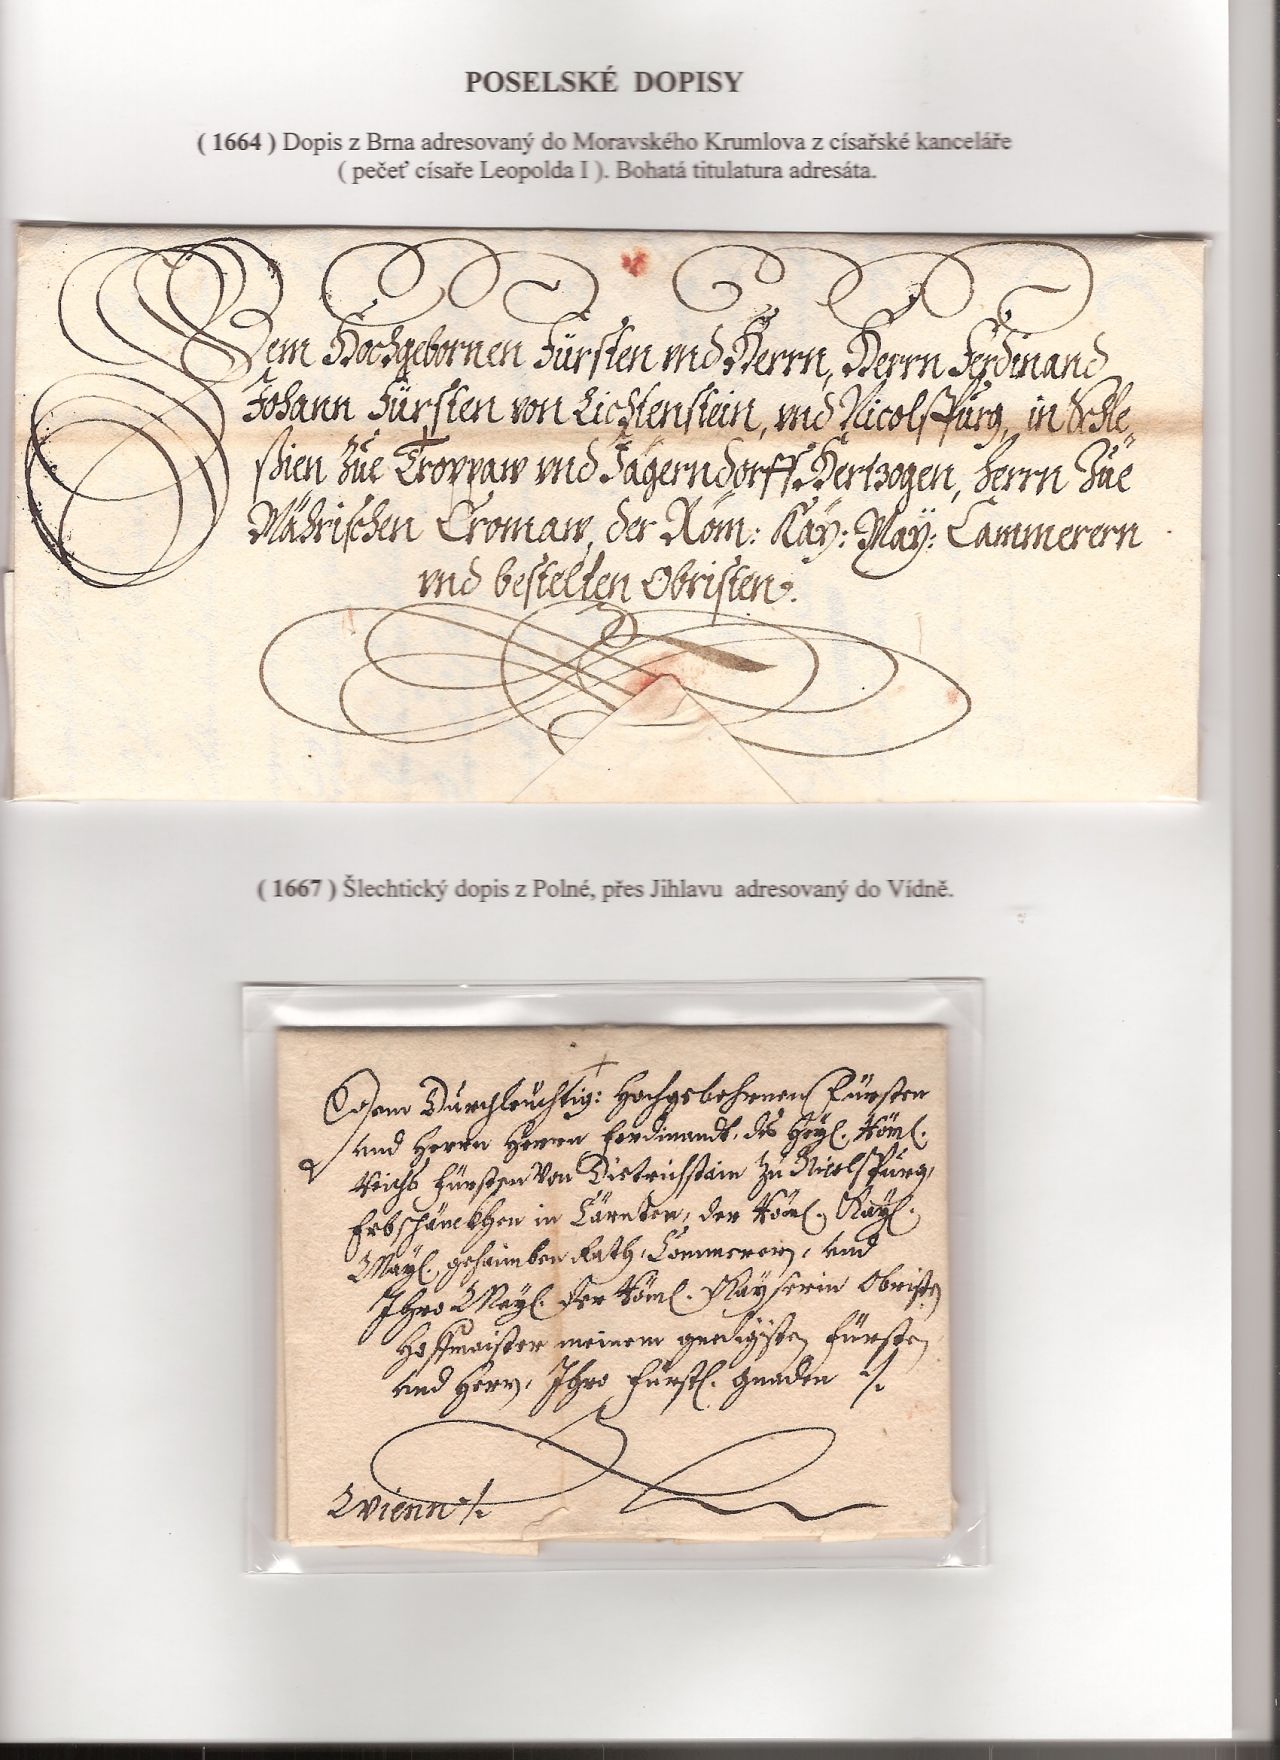 POSELSKÉ DOPISY
( 1664 ) Dopis z Brna adresovaný do Moravského Krumlova z císařské kanceláře
( pečeť císaře Leopolda I ). Bohatá titulatura adresáta.
Dem Hochgebornen Fürsten vnd Herrn, Herrn Ferdinand
Johann Fürsten von Lichtenstein, vnd Nicolspurg, in Schle
ßien Zue Troppaw vnd Jägerndorff Hertzogen, herrn Zue
Mährischen Cromaw, der Röm: Kay: May: Cammerern
vnd bestelten Obristen.
( 1667 ) Šlechtický dopis z Polné, přes Jihlavu adresovaný do Vídně.
Dem Durchleüchtig: Hochgebohrnen Fürsten
vnd Herrn Herrn Ferdinandt, des Heyl. Röml.
Reichs Fürsten Von Dietrichstain Zu Nicolspurg,
Erbschänckhen in Cärnten, der Röml. Kayl.
Mayl. gehaimben Rath, Commerern, vnd
Ihro Mayl. der Röml. Kayserin Obristen
Hoffmaister meinem gnedigisten Fürsten
vnd Herrn, Ihro Fürstl. Gnaden ./.
Wienn ./.